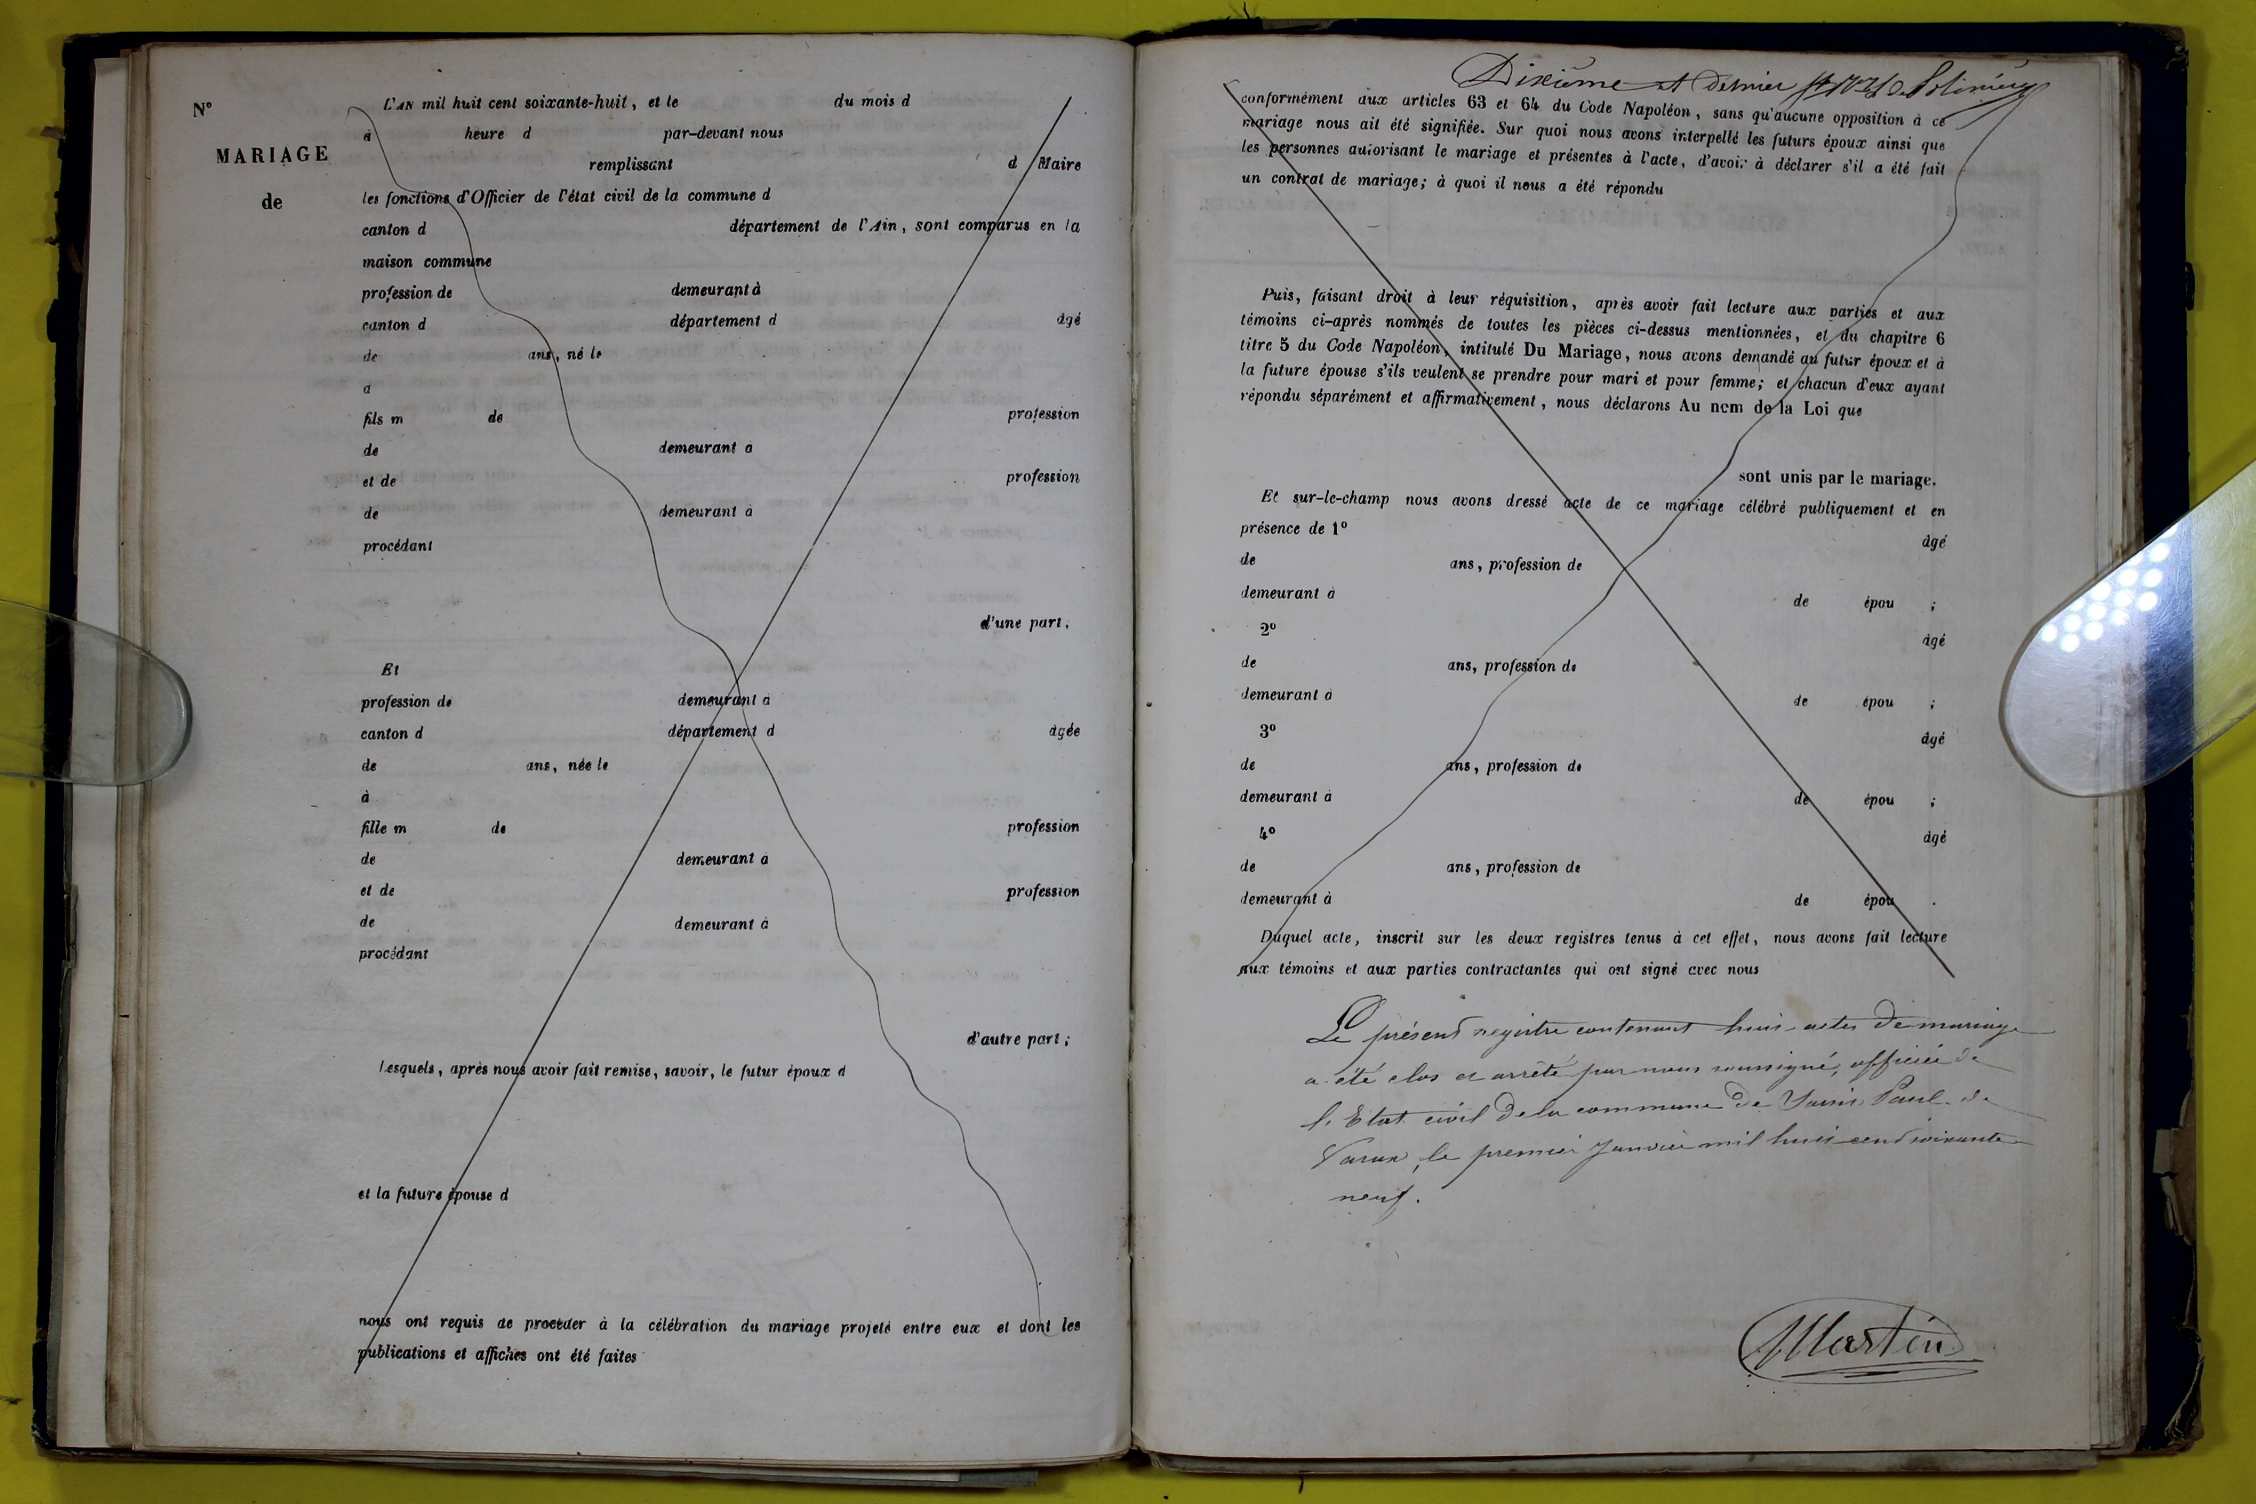 N°
MARIAGE
de
L'AN mil huit cent soixante-huit, et le du mois d
à heure d par-devant nous
remplissant d Maire
les fonctions d'Officier de l'état civil de la commune d
canton d département de l'Ain, sont comparus en la
maison commune
profession de demeurant à
canton d département d âgé
de ans, né le
à
fils m de profession
de demeurant à
et de profession
de demeurant à
procédant
d'une part,
Et
profession de demeurant à
canton d département d âgée
de ans, née le
à
fille m de profession
de demeurant à
et de profession
de demeurant à
procédant
d'autre part;
Lesquels, après nous avoir fait remise, savoir, le futur époux d
et la future épouse d
nous ont requis de procéder à la célébration du mariage projeté entre eux et dont les
publications et affiches ont été faites
Dixième et dernier
conformément aux articles 63 et 64 du Code Napoléon, sans qu'aucune opposition à ce
mariage nous ait été signifiée. Sur quoi nous avons interpellé les futurs époux ainsi que
les personnes autorisant le mariage et présentes à l'acte, d'avoir à déclarer s'il a été fait
un contrat de mariage; à quoi il nous a été répondu
Puis, faisant droit à leur réquisition, après avoir fait lecture aux parties et aux
témoins ci-après nommés de toutes les pièces ci-dessus mentionnées, et du chapitre 6
titre 5 du Code Napoléon, intitulé Du Mariage, nous avons demandé au futur époux et à
la future épouse s'ils veulent se prendre pour mari et pour femme; et chacun d'eux ayant
répondu séparément et affirmativement, nous déclarons Au nom de la Loi que
sont unis par le mariage.
Et sur-le-champ nous avons dressé acte de ce mariage célébré publiquement et en
présence de 1° âgé
de ans, profession de
demeurant à de épou ;
2° âgé
de ans, profession de
demeurant à de épou ;
3° âgé
de ans, profession de
demeurant à de épou ;
4° âgé
de ans, profession de
demeurant à de épou .
Duquel acte, inscrit sur les deux registres tenus à cet effet, nous avons fait lecture
aux témoins et aux parties contractantes qui ont signé avec nous
Le présent registre contenant huit actes de mariage
a été clos et arrêté par nous soussigné, officier de
l'Etat civil de la commune de Saint Paul de
Varax, le premier Janvier mil huit cent soixante
neuf.
Martin